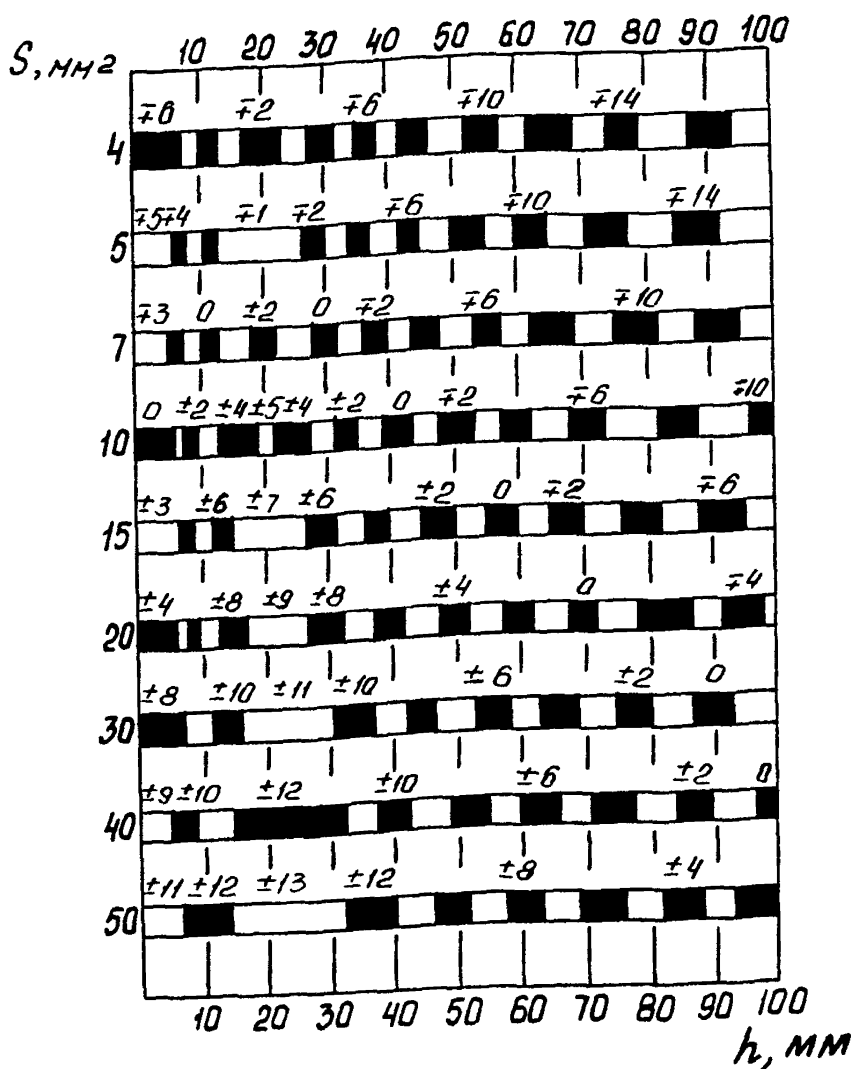 10 20 30 40 50 60 70 80 90 100
S, мм2
∓6 ∓2 ∓6 ∓10 ∓14
4
∓5 ∓4 ∓1 ∓2 ∓6 ∓10 ∓14
5
∓3 0 ±2 0 ∓2 ∓6 ∓10
7
0 ±2 ±4 ±5 ±4 ±2 0 ∓2 ∓6 ∓10
10
±3 ±6 ±7 ±6 ±2 0 ∓2 ∓6
15
±4 ±8 ±9 ±8 ±4 0 ∓4
20
±8 ±10 ±11 ±10 ±6 ±2 0
30
±9 ±10 ±12 ±10 ±6 ±2 0
40
±11 ±12 ±13 ±12 ±8 ±4
50
10 20 30 40 50 60 70 80 90 100
h, мм